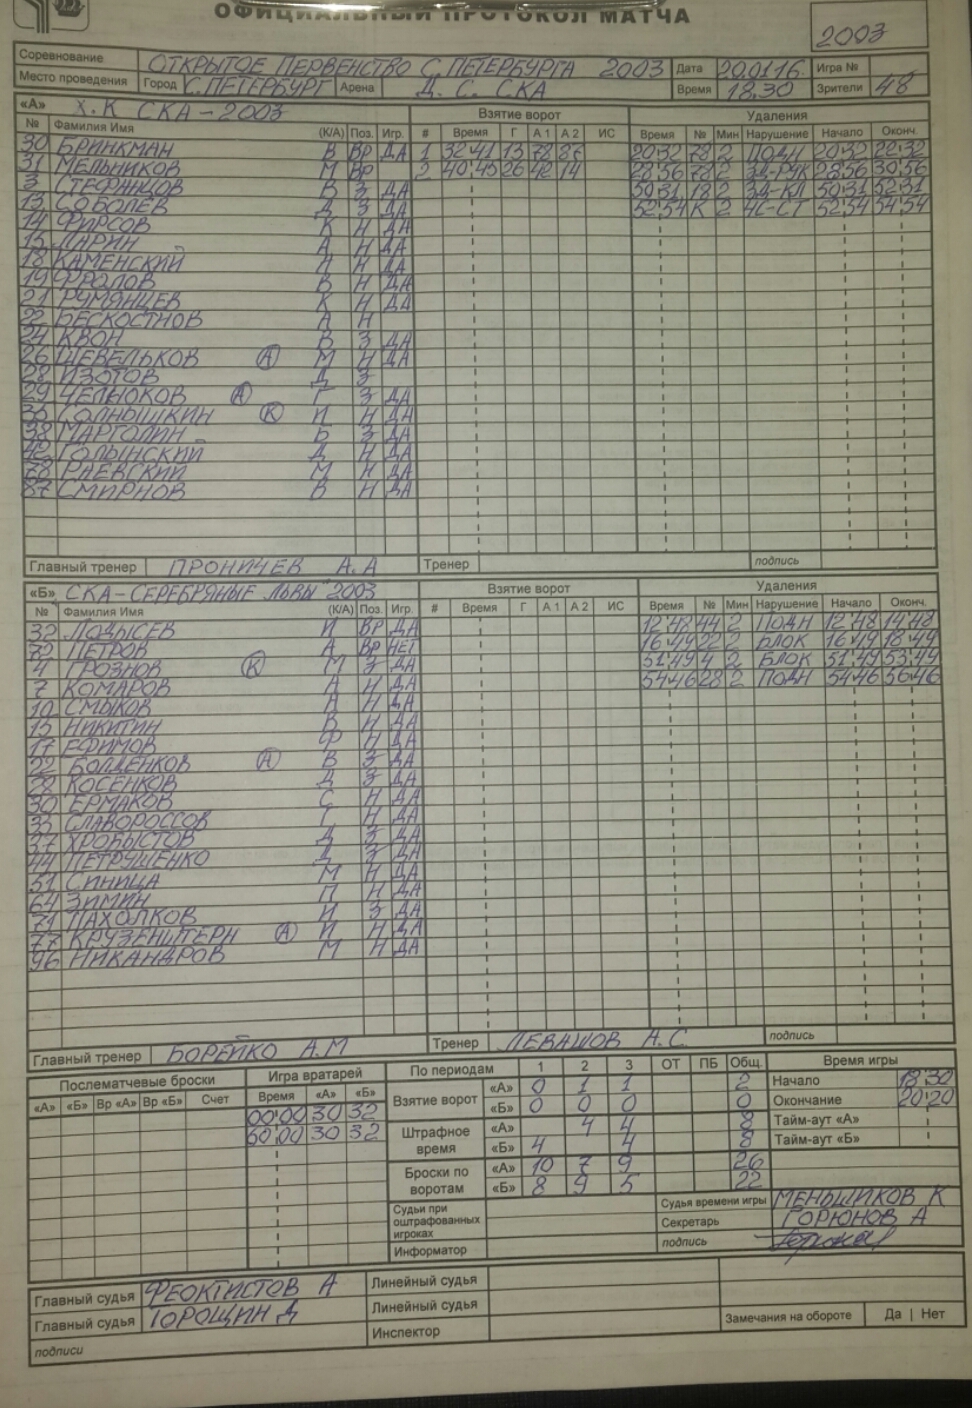 ОФИЦИАЛЬНЫЙ ПРОТОКОЛ МАТЧА
2003
Соревнование ОТКРЫТОЕ ПЕРВЕНСТВО С.ПЕТЕРБУРГА 2003 Дата 20.01.16 Игра №
Место проведения Город С.ПЕТЕРБУРГ Арена Д.С. СКА Время 18.30 Зрители 48
«А» Х.К СКА-2003 Взятие ворот Удаления
№ Фамилия Имя (К/А) Поз. Игр. # Время Г А 1 А 2 ИС Время № Мин Нарушение Начало Оконч.
30 БРИНКМАН В ВР ДА 1 32 41 13 78 87 20 32 78 2 ПОДН 20 32 22 32
31 МЕЛЬНИКОВ М ВР 2 40 45 26 42 14 28 56 78 2 ЗД-РУК 28 56 30 56
3 СТЕФАНЦОВ В З ДА 50 31 18 2 ЗД-КЛ 50 31 52 31
13 СОБОЛЕВ Д З ДА 52 54 К 2 ЧС-СТ 52 54 54 54
14 ФИРСОВ К Н ДА
15 ЛАРИН А Н ДА
18 КАМЕНСКИЙ И Н ДА
19 ФРОЛОВ В Н ДА
21 РУМЯНЦЕВ К Н ДА
22 БЕСКОСТНОВ А Н
24 КВОН В З ДА
26 ШЕВЕЛЬКОВ А М Н ДА
28 ИЗОТОВ Д З
29 ЧЕЛНОКОВ А Г З ДА
35 СОЛНЫШКИН К И Н ДА
38 МАРГОЛИН Б З ДА
42 ГОЛЫНСКИЙ Д Н ДА
78 РАЕВСКИЙ М Н ДА
87 СМИРНОВ В Н ДА
Главный тренер ПРОНИЧЕВ А.А Тренер подпись
«Б» СКА-СЕРЕБРЯНЫЕ ЛЬВЫ 2003 Взятие ворот Удаления
№ Фамилия Имя (К/А) Поз. Игр. # Время Г А 1 А 2 ИС Время № Мин Нарушение Начало Оконч.
32 ЛОДЫСЕВ И ВР ДА 12 48 44 2 ПОДН 12 48 14 48
72 ПЕТРОВ А ВР НЕТ 16 49 22 2 БЛОК 16 49 18 49
4 ГРОЗНОВ К М З ДА 51 49 4 2 БЛОК 51 49 53 49
7 КОМАРОВ А Н ДА 54 46 28 2 ПОДН 54 46 56 46
10 СМЫКОВ А Н ДА
15 НИКИТИН В Н ДА
17 ЕФИМОВ Ф Н ДА
22 БОЛДЕНКОВ А В З ДА
28 КОСЕНКОВ Д З ДА
30 ЕРМАКОВ С Н ДА
33 СЛАВОРОССОВ Г Н ДА
37 ХРОБЫСТОВ Д З ДА
44 ПЕТРУШЕНКО Д З ДА
51 СИНИЦА М Н ДА
64 ЗИМИН П Н ДА
71 ПАХОЛКОВ И З ДА
77 КРУЗЕНШТЕРН А И Н ДА
96 НИКАНДРОВ М Н ДА
Главный тренер БОРЕЙКО А.М Тренер ЛЕВАШОВ А.С. подпись
Послематчевые броски Игра вратарей По периодам 1 2 3 ОТ ПБ Общ. Время игры
«А» «Б» Вр «А» Вр «Б» Счет Время «А» «Б» Взятие ворот «А» 0 1 1 2 Начало 18 30
00 00 30 32 «Б» 0 0 0 0 Окончание 20 20
60 00 30 32 Штрафное время «А» 4 4 8 Тайм-аут «А»
«Б» 4 4 8 Тайм-аут «Б»
Броски по воротам «А» 10 7 9 26
«Б» 8 9 5 22
Судьи при оштрафованных игроках Судья времени игры МЕНЬШИКОВ К
Секретарь ГОРЮНОВ А
Информатор подпись
Главный судья ФЕОКТИСТОВ А Линейный судья
Главный судья ЮРОЩИН Д Линейный судья Замечания на обороте Да | Нет
подписи Инспектор